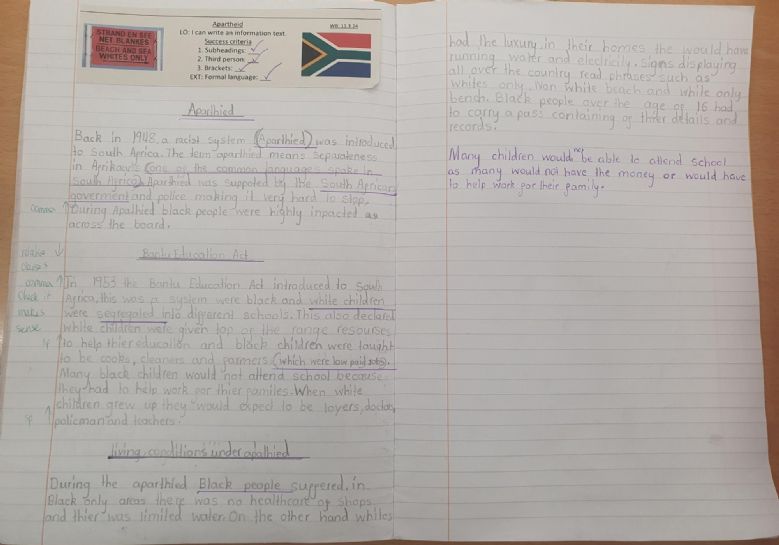 STRAND EN SEE
NET BLANKES
BEACH AND SEA
WHITES ONLY
Apartheid
WB: 11.3.24
LO: I can write an information text.
Success criteria
1. Subheadings:
2. Third person:
3. Brackets:
EXT: Formal language:
Aparthied
Back in 1948, a racist system (Aparthied) was introduced
to South Africa. The term aparthied means separateness
in (one of the common languages spoke in
South Africa). Aparthied was suppoted by the South African
goverment and police making it very hard to stop.
comma ↑ During Apalthied black people were highly inpacted as
across the board.
relative ↓
clause
Bantu Education Act
comma ↑ In 1953 the Bantu Education Act introduced to South
Check it Africa, this was a system were black and white children
makes were segregated into different schools. This also declared
sense white children were given top of the range resourses
to help thier education and black children were taught
to be cooks, cleaners and farmers (which were low paid jobs).
Many black children would not attend school because
they had to help work for thier families. When white
children grew up they would expect to be loyers, doctors,
policman and teachers.
living conditions under apalthied
During the aparthied Black people suffered. in
Black only areas there was no healthcare of shops
and thier was limited water. On the other hand whites
had the luxury. in their homes the would have
running water and electricity. Signs displaying
all over the country read phrases such as
whites only, Non white beach and white only
bench. Black people over the age of 16 had
to carry a pass containing of thier details and
records.
Many children would not be able to attend school
as many would not have the money or would have
to help work for their family.